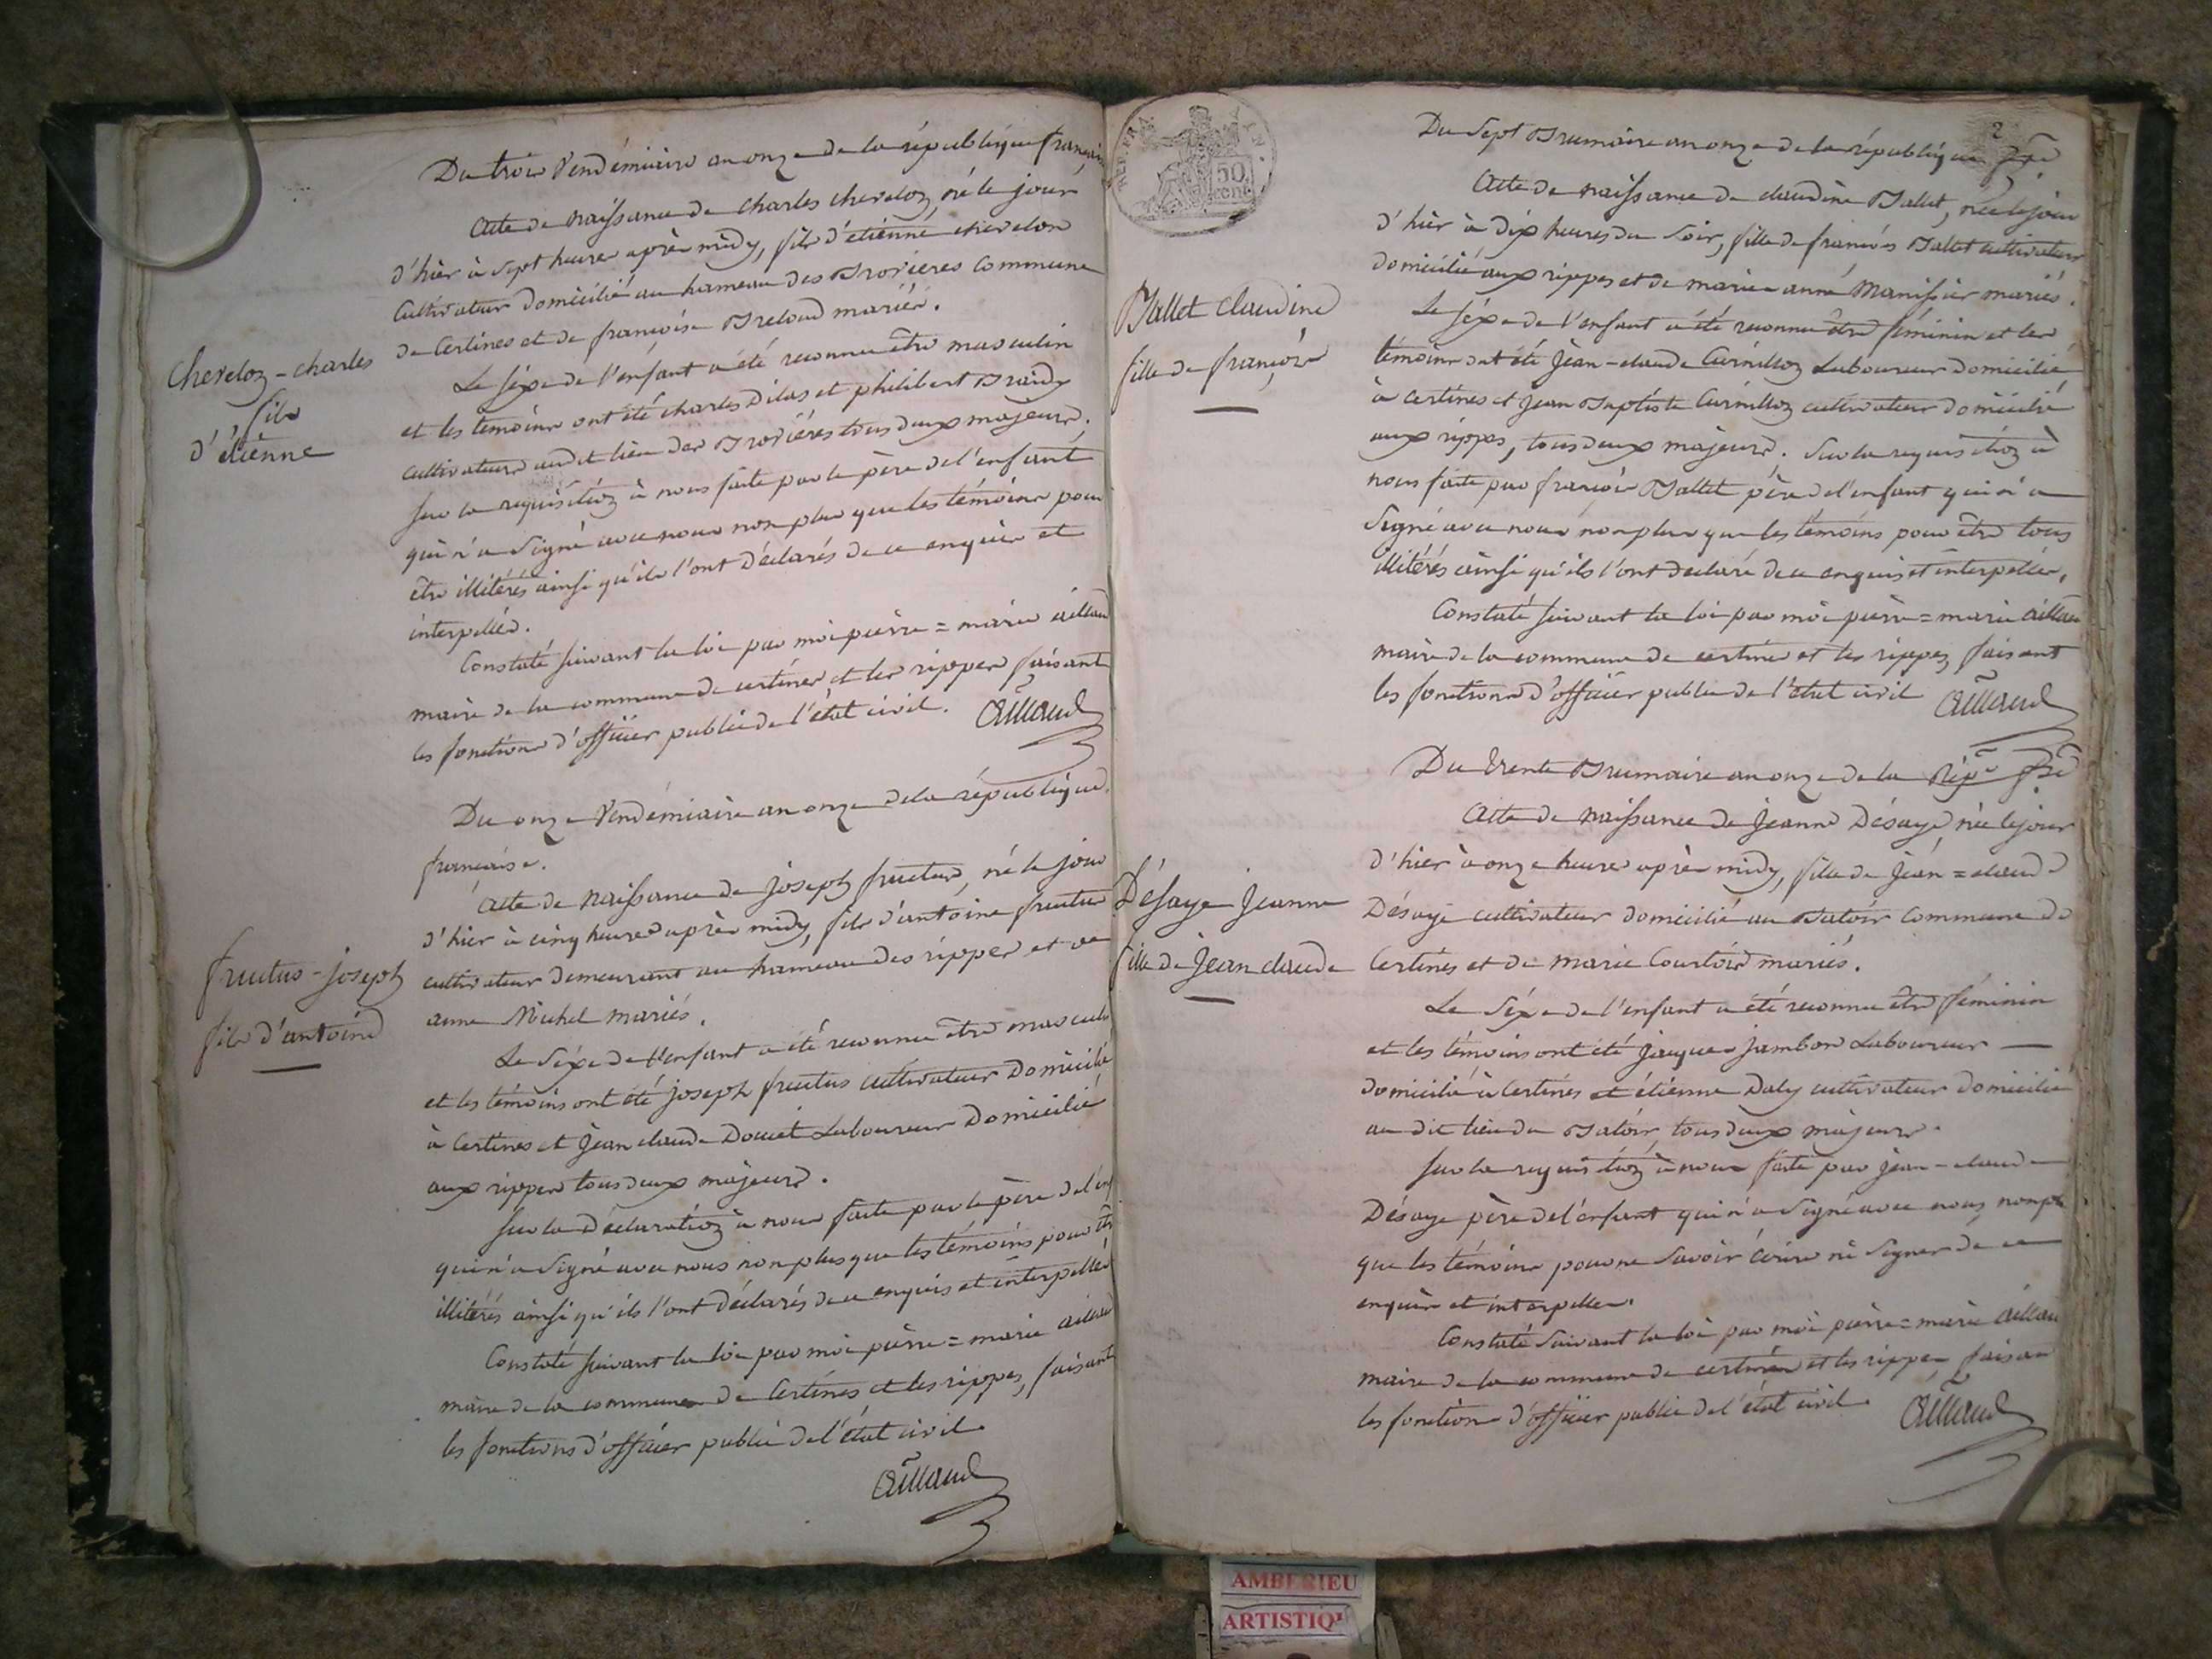 Du trois Vendémiaire an onze de la république française
Acte de naissance de charles cheveloz, né le jour
d'hièr à sept heures après midy, fils d'étienne chevelon
Cultivateur domicilié au hameau des Brosières Commune
de Certines et de françoise Breloud mariés.
Cheveloz - charles
fils
d'étienne
Le séxe de l'enfant a été reconnu être masculin
et les temoins ont été charles Dilas et philibert Braidy
cultivateurs audit lieu des Brosières tous deux majeurs.
sur la requisitioz à nous faite par le père de l'enfant
qui n'a signé avec nous non plus que les témoins pour
être illitérés ainsi qu'ils l'ont déclarés de ce enquis et
interpellés.
Constaté suivant la loi par moi pierre = marie aillaud
maire de la commune de certines et les rippes faisant
les fonctions d'officier public de l'état civil. Aillaud
Du onze Vendémiaire an onze de la république
française.
Acte de naissance de joseph fructus, né le jour
d'hier à cinq heures après midy, fils d'antoine fructus
cultivateur demeurant au hameau des rippes et de
anne Michel mariés.
fructus - joseph
fils d'antoine
Le séxe de l'enfant a été reconnu être masculin
et les témoins ont été joseph fructus cultivateur domicilié
à Certines et jean claude Douet Laboureur domicilié
aux rippes tous deux majeurs.
sur la déclaratioz à nous faite par le père de l'enf
qui n'a signé avec nous non plus que les témoins pour être
illitérés ainsi qu'ils l'ont déclarés de ce enquis et interpellés
Constaté suivant la loi par moi pierre = marie aillaud
maire de la commune de Certines et les rippes, faisant
les fonctions d'officier public de l'état civil.
Aillaud
REP. FRA
50
cent
2
Du sept Brumaire an onze de la république fse
Acte de naissance de claudine Ballet, née le jour
d'hièr à dix heures du soir, fille de françois Ballet cultivateur
domicilié aux rippes et de marie anne Manissier mariés.
Ballet claudine
fille de françois
Le séxe de l'enfant a été reconnu être féminin et les
témoins ont été Jean - claude Curnilloz Laboureur domicilié
à certines et Jean Baptiste Curnilloz cultivateur domicilié
aux rippes, tous deux majeurs. Sur la requisitioz à
nous faite par françois Ballet père de l'enfant qui n'a
Signé avec nous non plus que les témoins pour être tous
illitérés ainsi qu'ils l'ont declaré de ce enquis et interpellés,
Constaté suivant la loi par moi pierre = marie aillau
maire de la commune de certines et les rippes, faisant
les fonctions d'officier public de l'état civil Aillaud
Du trente Brumaire an onze de la répe fse
Acte de naissance de Jeanne Désaye née le jour
d'hier à onze heures après midy, fille de jean = claude
Désaye cultivateur domicilié au Batoir Commune de
Certines et de Marie Courtois mariés.
Désaye Jeanne
fille de Jean claude
Le Séxe de l'enfant a été reconnu être féminin
et les témoins ont été jacques jambon Laboureur
domicilié à Certines et étienne Daly cultivateur domicilié
au dit lieu du Batoir, tous deux majeurs.
sur la requisitioz à nous faite par jean - claude
Désaye père de l'enfant qui n'a Signé avec nous, non pl
que les témoins pour ne Savoir écrire ni Signer de ce
enquis et interpellés.
Constaté suivant la loi par moi pierre = marie aillau
maire de la commune de certines et les rippes, faisan
les fonctions d'officier public de l'état civil. Aillaud
AMBERIEU
ARTISTIQU